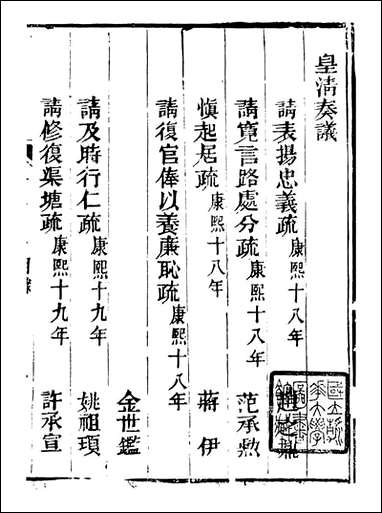 皇清奏議
請表揚忠義疏康熙十八年
請寬言路處分疏康熙十八年 范承勲
愼起居疏康熙十八年 蔣伊
請復官俸以養廉恥疏康熙十八年
金世鑑
請及時行仁疏康熙十九年 姚祖頊
請修復渠塘疏康熙十九年 許承宣